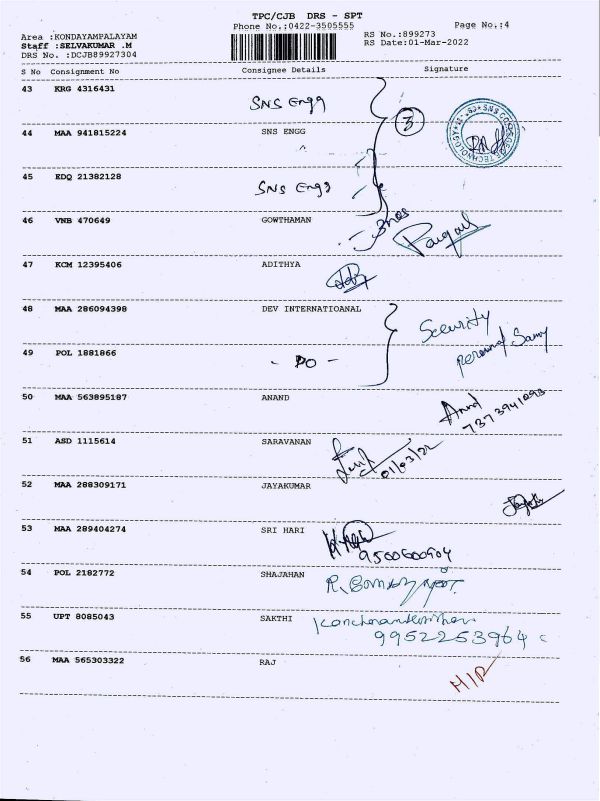 TPC/CJB DRS - SPT
Phone No.:0422-3505555
Page No.:4
Area :KONDAYAMPALAYAM
Staff :SELVAKUMAR .M
DRS No. :DCJB89927304
RS No.:899273
RS Date:01-Mar-2022
S No Consignment No Consignee Details Signature
43 KRG 4316431 SNS Engg
3
44 MAA 941815224 SNS ENGG
45 EDQ 21382128 SNS Engg
46 VNB 470649 GOWTHAMAN
47 KCM 12395406 ADITHYA
48 MAA 286094398 DEV INTERNATIOANAL Security
49 POL 1881866 - PO -
50 MAA 563895187 ANAND Anand
51 ASD 1115614 SARAVANAN 01/03/22
52 MAA 288309171 JAYAKUMAR
53 MAA 289404274 SRI HARI
9500600904
54 POL 2182772 SHAJAHAN
55 UPT 8085043 SAKTHI
9952253964
56 MAA 565303322 RAJ